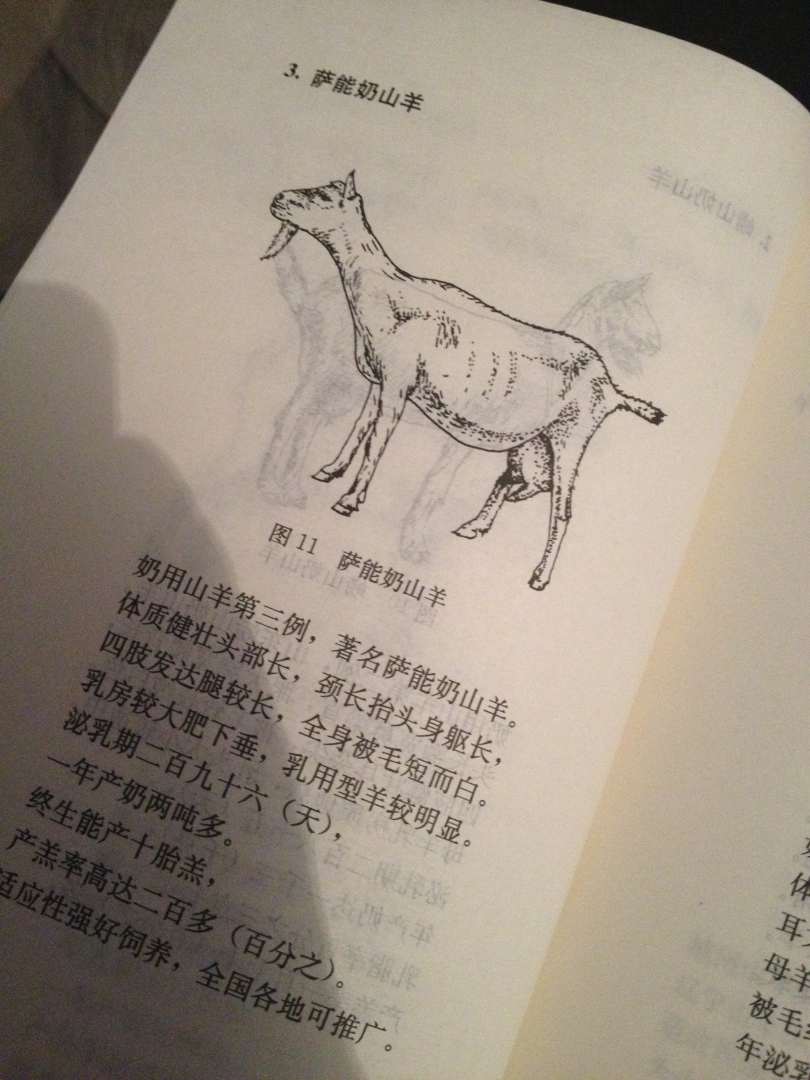 3. 萨能奶山羊
图 11 萨能奶山羊
奶用山羊第三例，著名萨能奶山羊。
体质健壮头部长，颈长抬头身躯长，
四肢发达腿较长，全身被毛短而白。
乳房较大肥下垂，乳用型羊较明显。
泌乳期二百九十六（天），
一年产奶两吨多。
终生能产十胎羔，
产羔率高达二百多（百分之）。
适应性强好饲养，全国各地可推广。
体
母羊
被毛
年泌乳
1. 崂山奶山羊